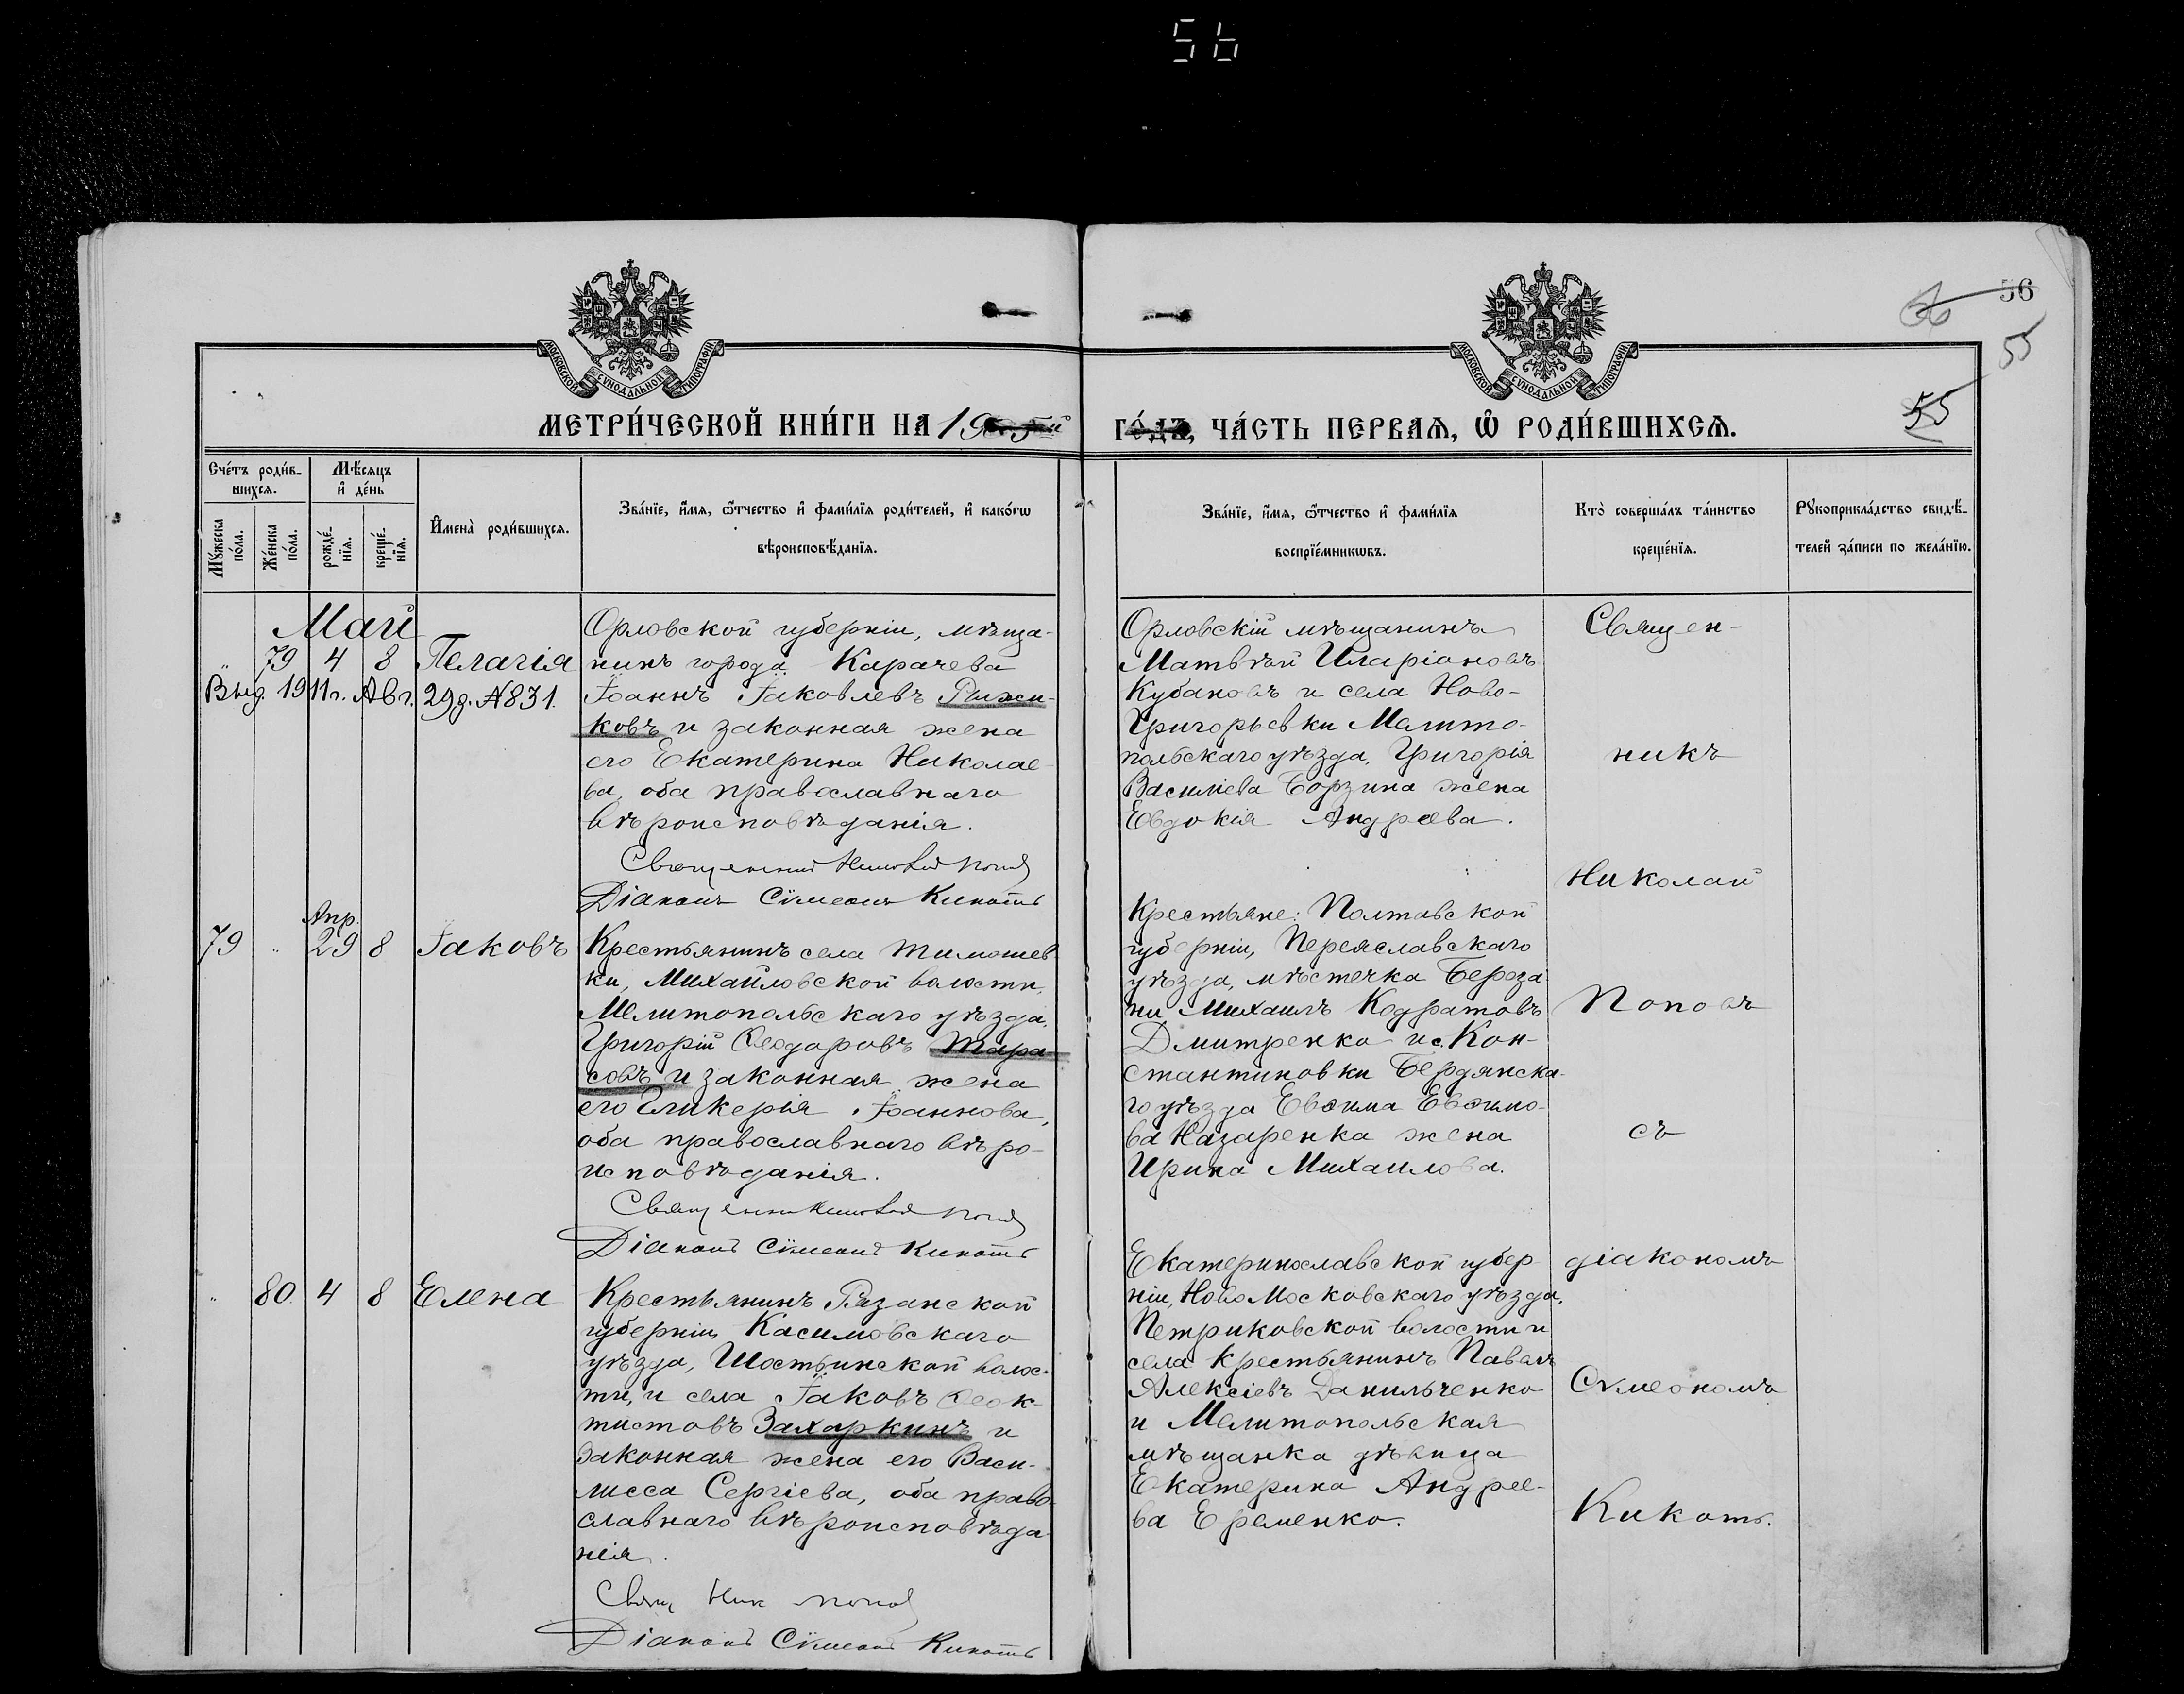 56
56
56
55
МОСКОВСКОЙ СѴНОДАЛЬНОЙ ТИПОГРАФІИ
МОСКОВСКОЙ СѴНОДАЛЬНОЙ ТИПОГРАФІИ
МЕТРИ́ЧЕСКОЙ КНИ́ГИ НА 1905й
ГО́ДЪ, ЧА́СТЬ ПЕРВАЯ, Ѡ РОДИ́ВШИХСЯ.
55
Сче́тъ роди́в-
шихся.
Мѣ́сяцъ
и де́нь
Мꙋ́жеска
по́ла.
Же́нска
по́ла.
рожде́-
нїя.
креще́-
нїя.
Имена̀ роди́вшихся.
Зва́нїе, и́мя, ѻ́тчество и фами́лїя роди́телей, и како́гѡ
вѣроисповѣ́данїя.
Зва́нїе, и́мя, ѻ́тчество и фами́лїя
воспрїе́мникѡвъ.
Кто̀ соверша́лъ та́инство
креще́нїя.
Рꙋкоприкла́дство свидѣ́-
телей за́писи по жела́нїю.
Май
" 79 4 8 Пелагія
Выд. 1911 г. Авг. 29 д. № 831.
Орловской губерніи, мѣща-
нинъ города Карачева
Іоаннъ Іаковлевъ Рыжи-
ковъ и законная жена
его Екатерина Николае-
ва, оба православнаго
вѣроисповѣданія.
Священникъ Николай Поповъ
Діаконъ Сѵмеонъ Кикоть
Орловскій мѣщанинъ
Матвѣй Иларіоновъ
Кубановъ и села Ново-
Григорьевки Мелито-
польскаго уѣзда, Григорія
Василіева Борзина жена
Евдокія Андреева.
Священ-
никъ
Николай
Поповъ
съ
діакономъ
Сѵмеономъ
Кикоть.
79 " Апр. 29 8 Іаковъ
Крестьянинъ села Тимошев
ки, Михайловской волости,
Мелитопольскаго уѣзда,
Григорій Ѳеодоровъ Тара
совъ и законная жена
его Гликерія Іоаннова,
оба православнаго вѣро-
исповѣданія.
Священникъ Николай Поповъ
Діаконъ Сѵмеонъ Кикоть
Крестьяне: Полтавской
губерніи, Переяславскаго
уѣзда, мѣстечка Береза-
ни Михаилъ Кодратовъ
Дмитренко и с. Кон-
стантиновки Бердянска-
го уѣзда Евѳима Евѳимо-
ва Назаренка жена
Ирина Михаилова.
" 80 4 8 Елена
Крестьянинъ Рязанской
губерніи Касимовскаго
уѣзда, Шостьинской волос-
ти, и села Іаковъ Ѳеок-
тистовъ Захаркинъ и
законная жена его Васи-
лисса Сергіева, оба право-
славнаго вѣроисповѣда
нія.
Свящ Ник Поповъ
Діаконъ Сѵмеонъ Кикоть
Екатеринославской губер
ніи, Новомосковскаго уѣзда,
Петриковской волости и
села крестьянинъ Павелъ
Алексіевъ Данильченко
и Мелитопольская
мѣщанка дѣвица
Екатерина Андрее-
ва Еременко.